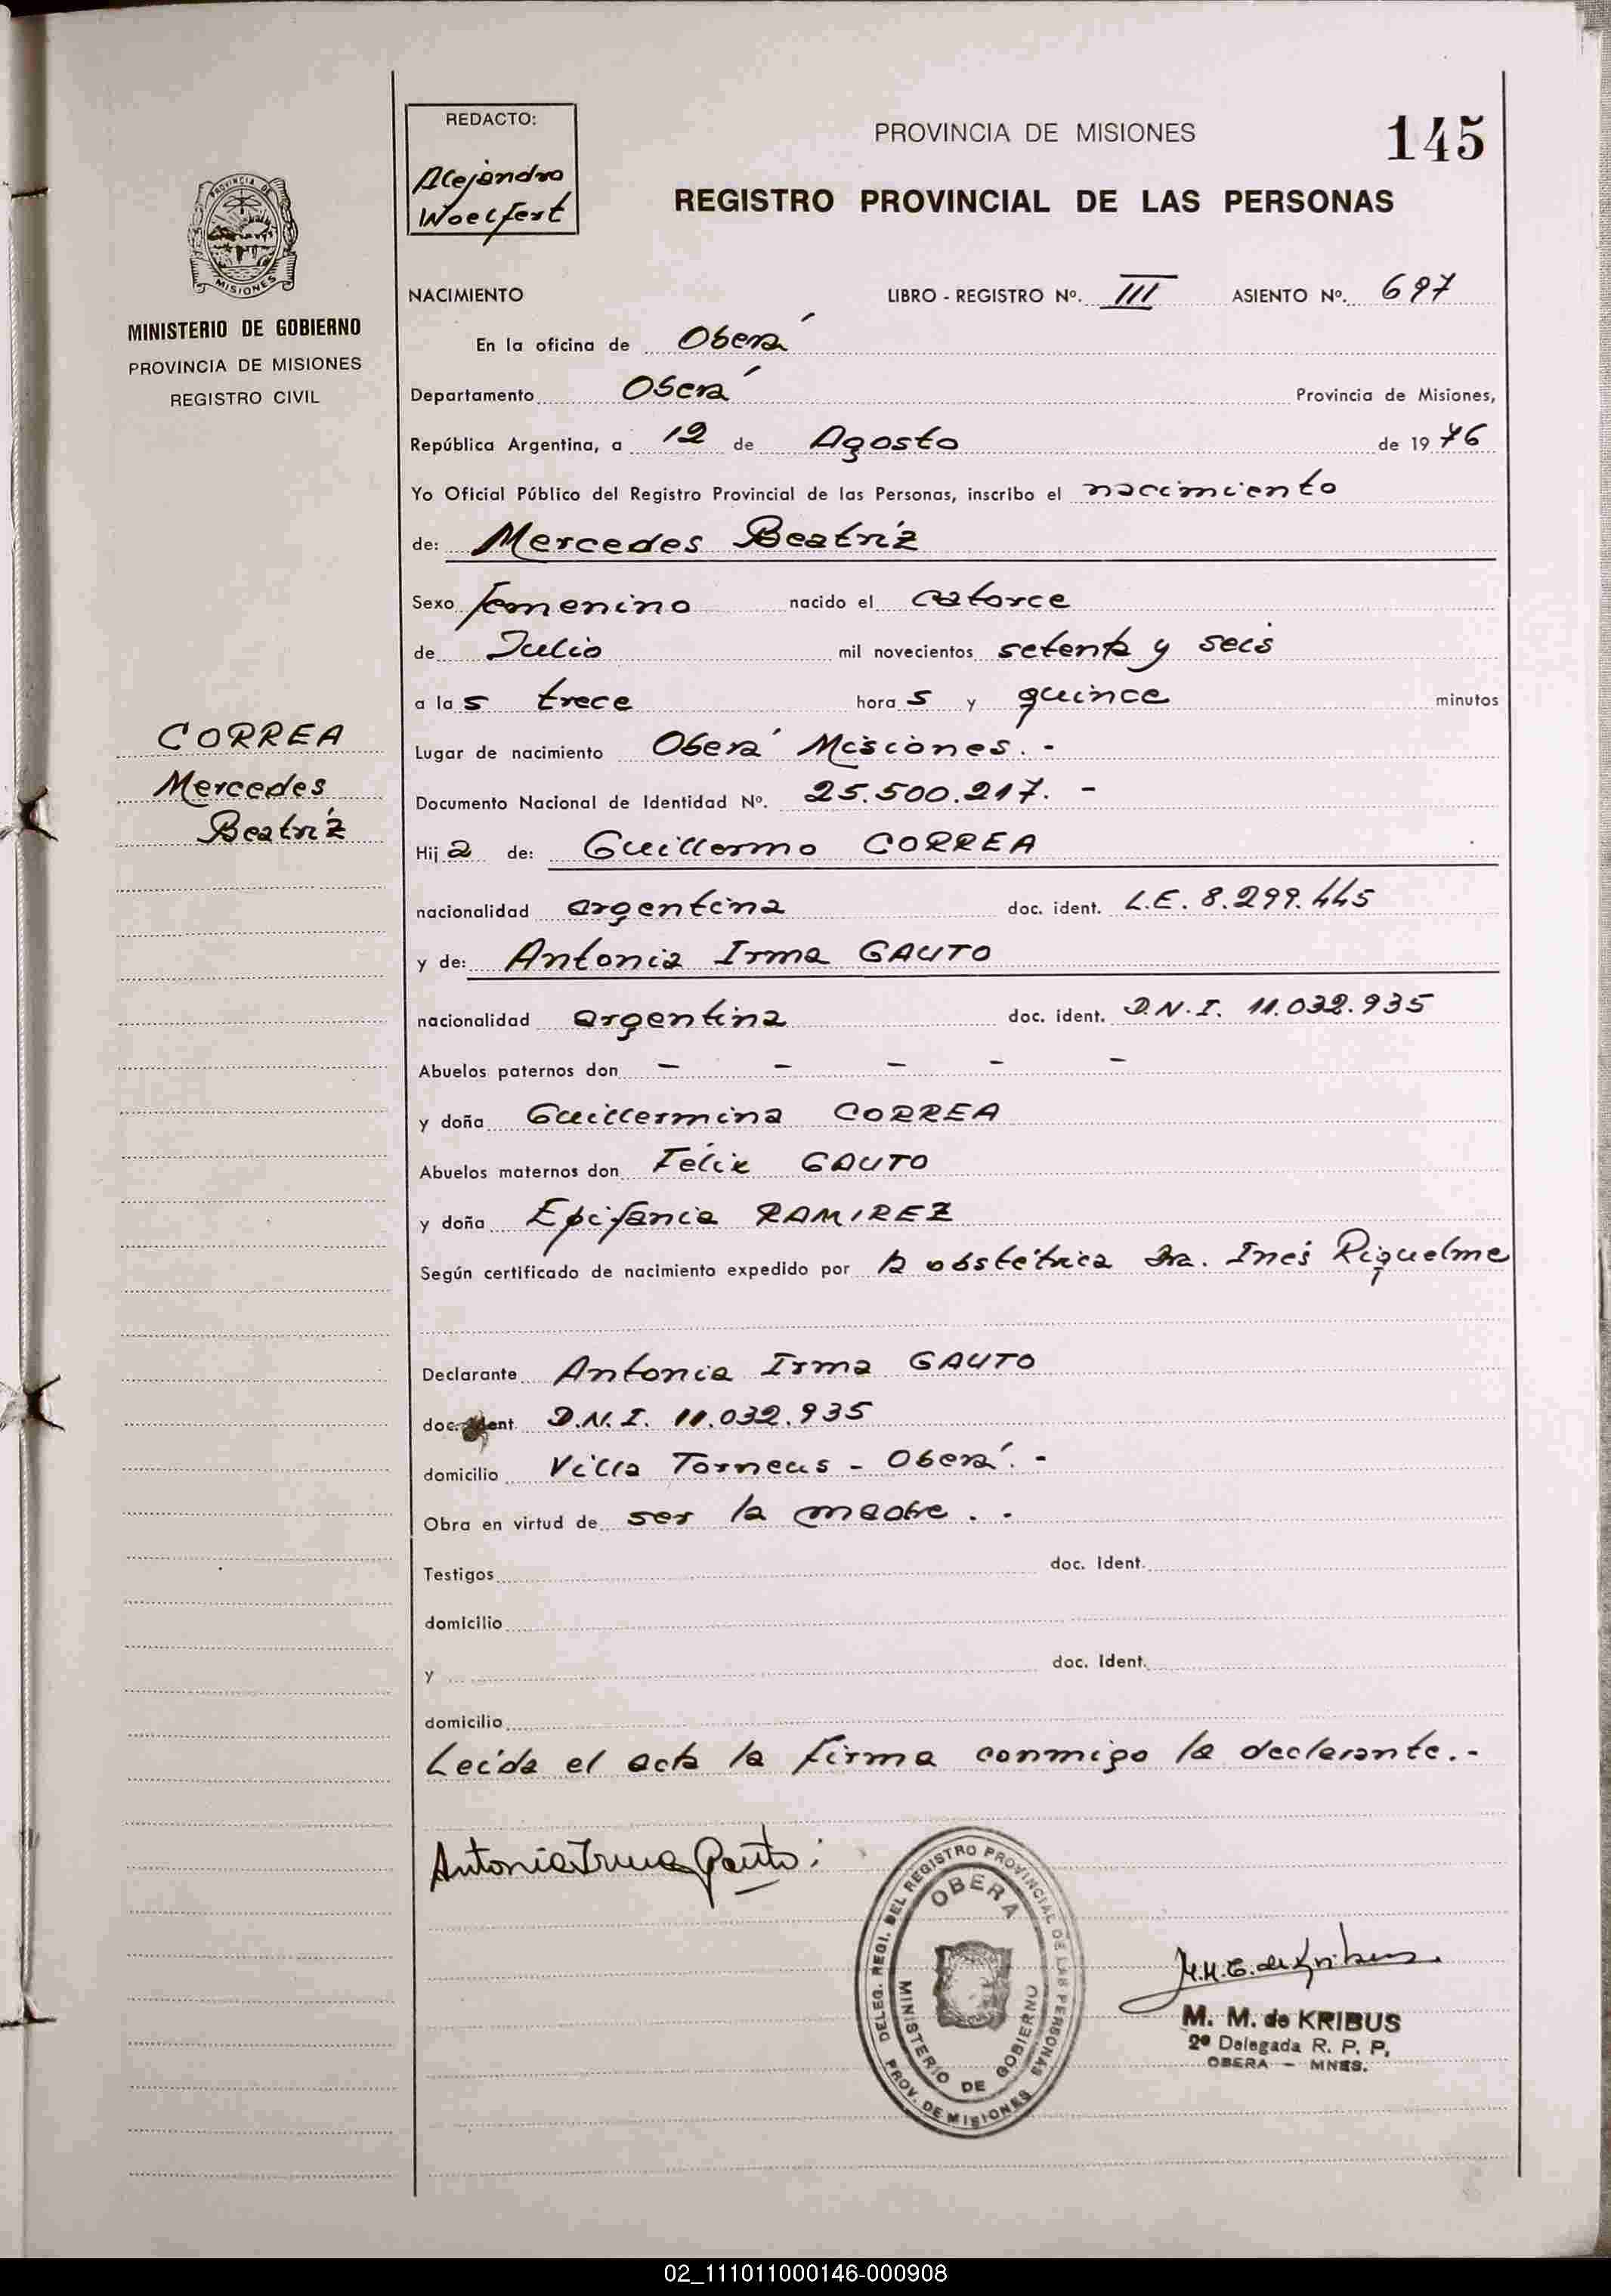 REDACTO:
Alejandro
Woelfert
PROVINCIA DE MISIONES
145
REGISTRO PROVINCIAL DE LAS PERSONAS
PROVINCIA DE
MISIONES
MINISTERIO DE GOBIERNO
PROVINCIA DE MISIONES
REGISTRO CIVIL
NACIMIENTO LIBRO - REGISTRO Nº. III ASIENTO Nº. 697
En la oficina de Oberá
Departamento Oberá Provincia de Misiones,
República Argentina, a 12 de Agosto de 1976
Yo Oficial Público del Registro Provincial de las Personas, inscribo el nacimiento
de: Mercedes Beatríz
Sexo femenino nacido el catorce
de Julio mil novecientos setenta y seis
a las trece horas y quince minutos
CORREA
Mercedes
Beatríz
Lugar de nacimiento Oberá Misiones. -
Documento Nacional de Identidad Nº. 25.500.217. -
Hija de: Guillermo CORREA
nacionalidad argentina doc. ident. L.E. 8.299.445
y de: Antonia Irma GAUTO
nacionalidad argentina doc. ident. D.N.I. 11.032.935
Abuelos paternos don - - - - -
y doña Guillermina CORREA
Abuelos maternos don Félix GAUTO
y doña Epifania RAMIREZ
Según certificado de nacimiento expedido por la obstétrica Sra. Inés Riquelme
Declarante Antonia Irma GAUTO
doc. ident. D.N.I. 11.032.935
domicilio Villa Torneus - Oberá. -
Obra en virtud de ser la madre. -
Testigos doc. ident.
domicilio
y doc. ident.
domicilio
Leída el acta la firma conmigo la declarante. -
Antonia Irma Gauto
DELEG. REGI. DEL REGISTRO PROVINCIAL DE LAS PERSONAS
OBERA
MINISTERIO DE GOBIERNO
PROV. DE MISIONES
M. M. de KRIBUS
2ª Delegada R. P. P.
OBERA - MNES.
02_111011000146-000908